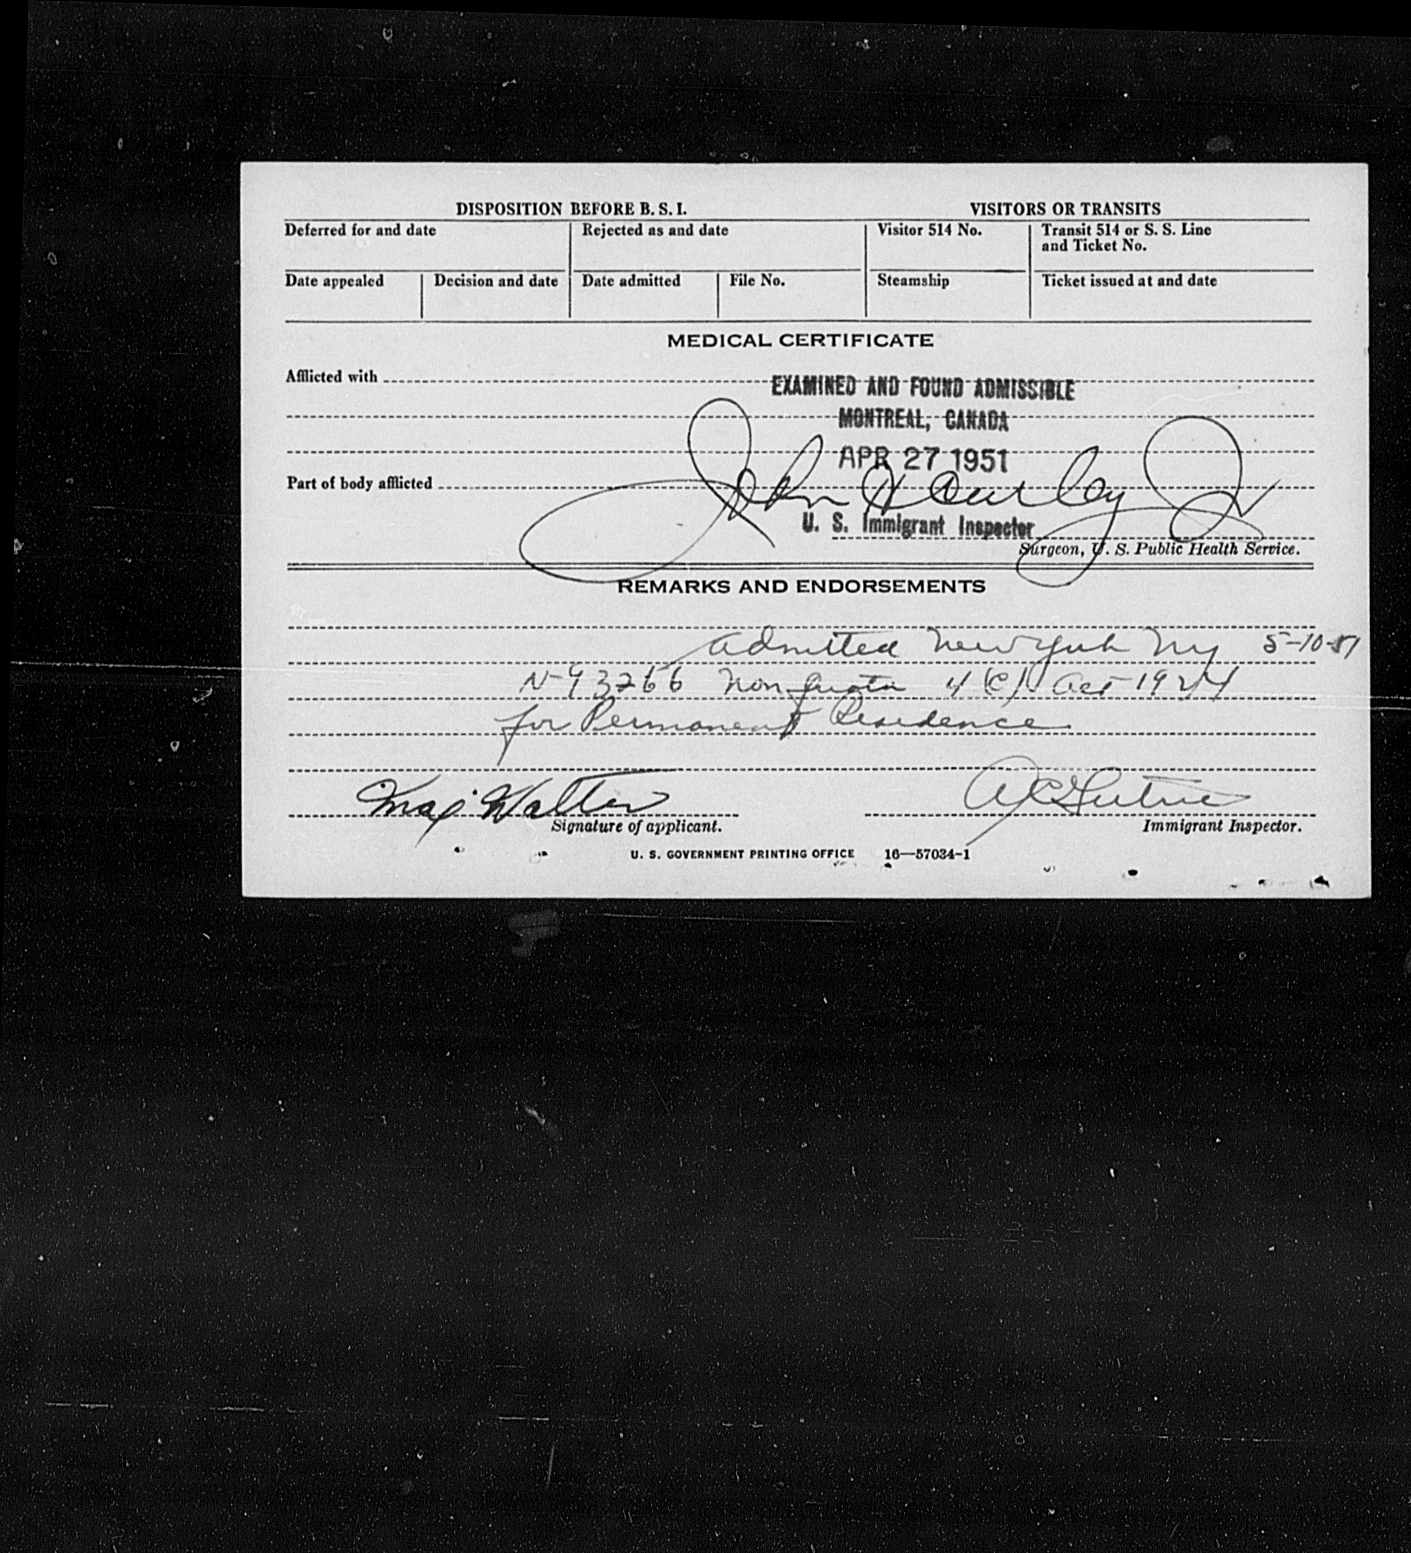 DISPOSITION BEFORE B. S. I. VISITORS OR TRANSITS
Deferred for and date Rejected as and date Visitor 514 No. Transit 514 or S. S. Line
and Ticket No.
Date appealed Decision and date Date admitted File No. Steamship Ticket issued at and date
MEDICAL CERTIFICATE
Afflicted with
EXAMINED AND FOUND ADMISSIBLE
MONTREAL, CANADA
APR 27 1951
Part of body afflicted
John H
U. S. Immigrant Inspector
Surgeon, U. S. Public Health Service.
REMARKS AND ENDORSEMENTS
admitted New York Ny 5-10-51
N-93266 Non quota 4 (c) Act 1924
for Permanent Residence
Max Walter
Signature of applicant. Immigrant Inspector.
U. S. GOVERNMENT PRINTING OFFICE 16—57034-1